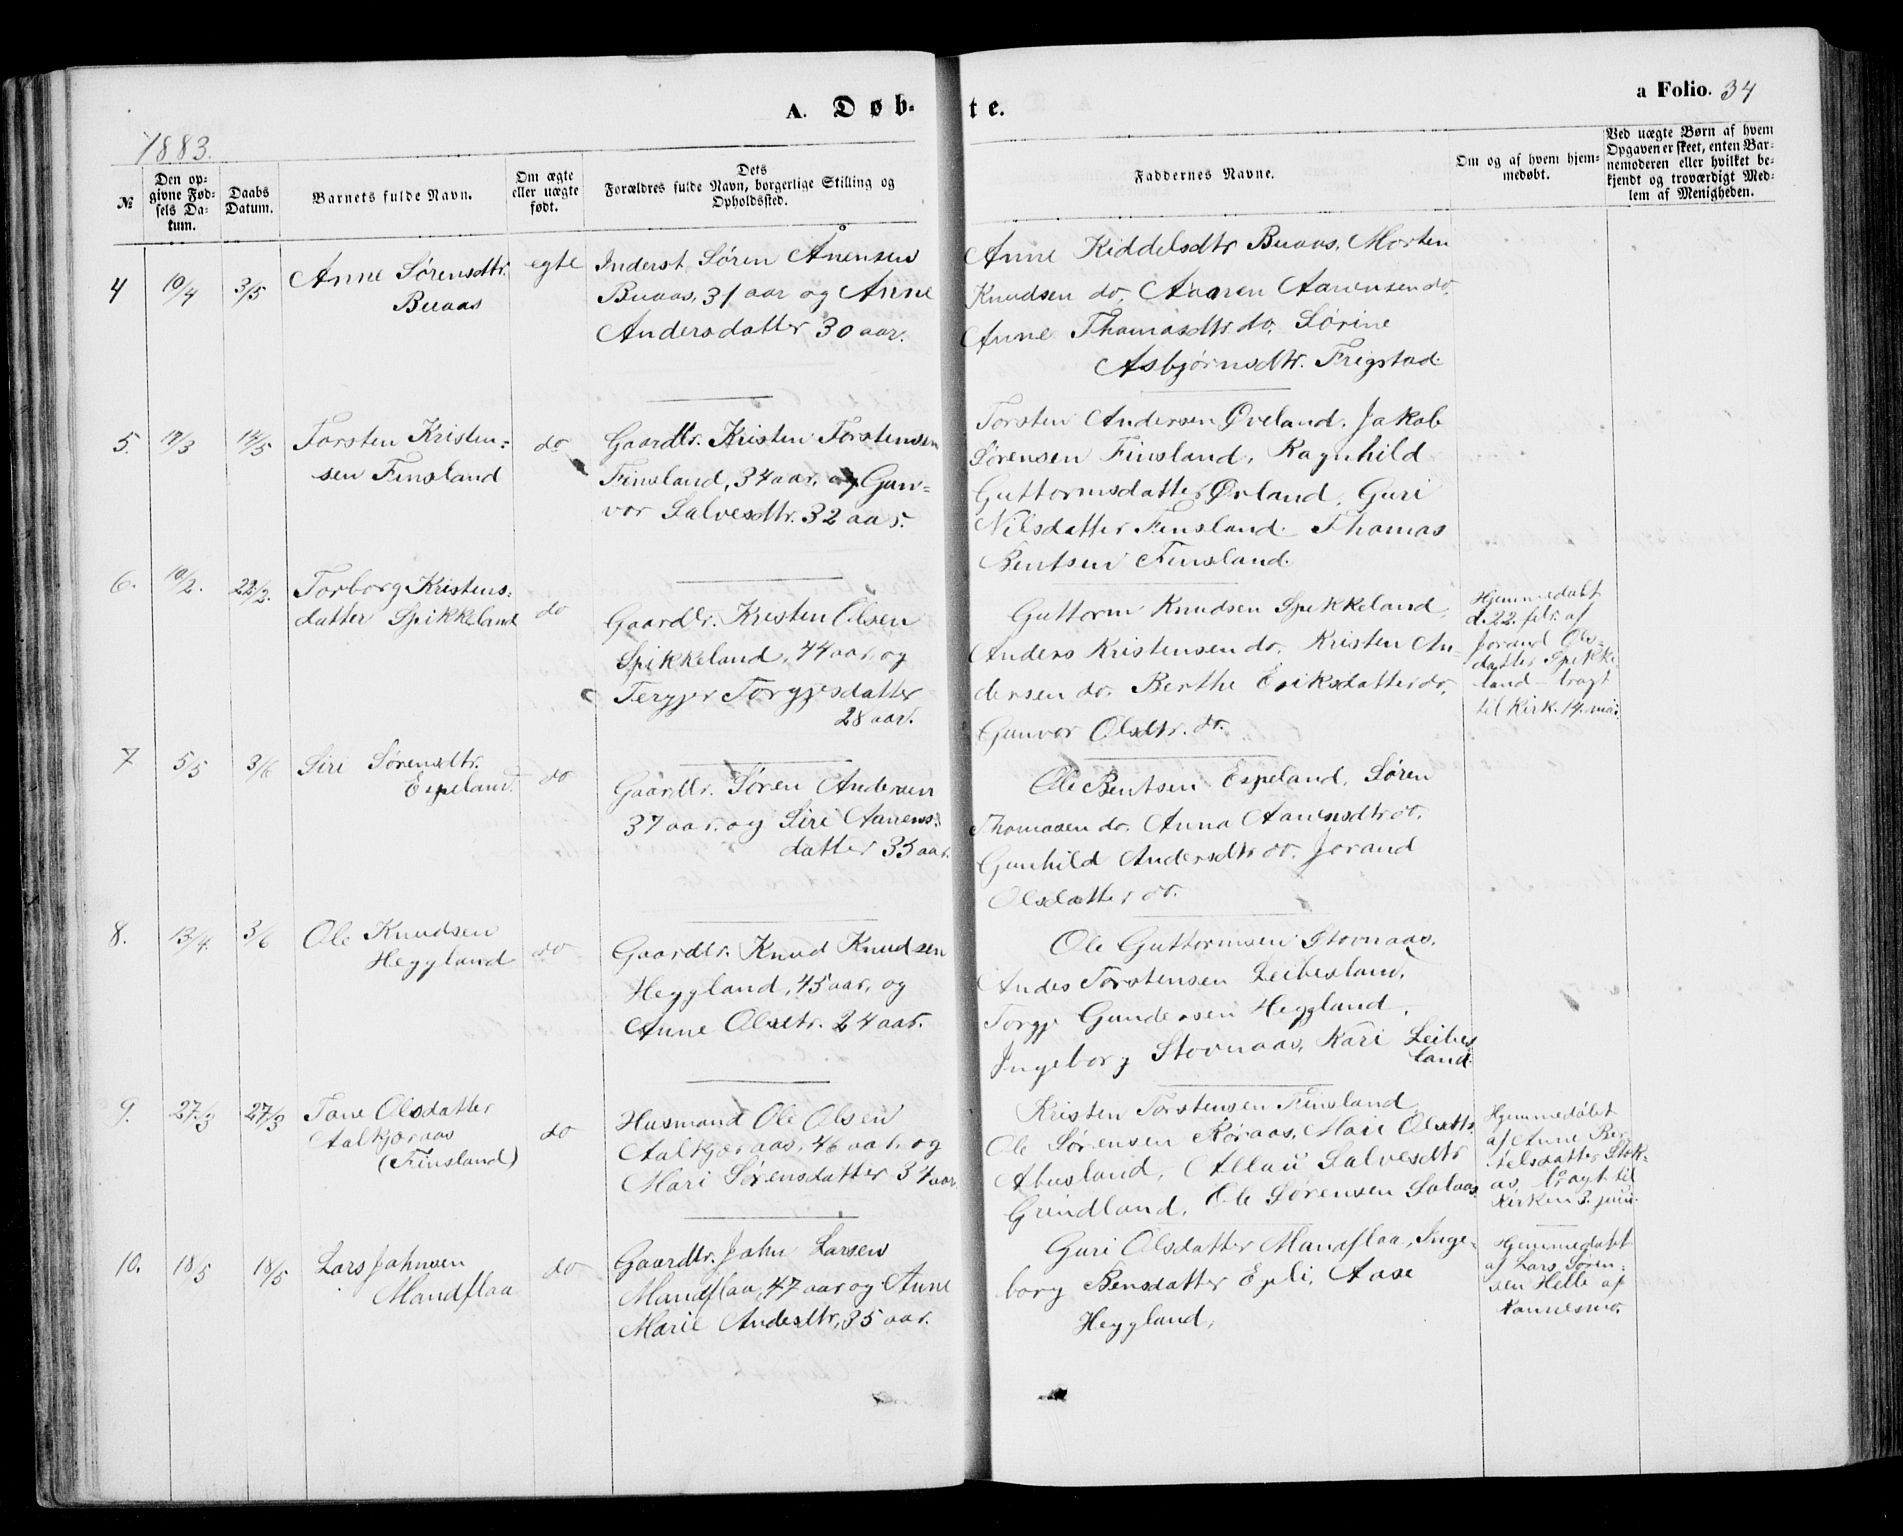 A. Døb-
te.
a Folio. 34
1883.
№
Den op-
givne Fød-
sels Da-
tum.
Daabs
Datum.
Barnets fulde Navn.
Om ægte
eller uægte
født.
Dets
Forældres fulde Navn, borgerlige Stilling og
Opholdssted.
Faddernes Navne.
Om og af hvem hjem-
medøbt.
Ved uægte Børn af hvem
Opgaven er skeet, enten Bar-
nemoderen eller hvilket be-
kjendt og troværdigt Med-
lem af Menigheden.
4 10/4 3/5
Anne Sørensdtr.
Buaas
egte
Inderst Søren Ånensen
Buaas, 31 aar og Anne
Andersdatter 30 aar.
Anne Kiddelsdtr Buaas, Morten
Knudsen do. Aanen Aanensen do.
Anne Thomasdtr. do. Sørine
Asbjørnsdtr. Frigstad.
5. 17/3 14/5
Torsten Kristen=
sen Finsland
do
Gaardbr. Kristen Torstensen
Finsland, 34 aar, og Gun=
vor Salvesdtr. 32 aar.
Torsten Andersen Øveland. Jakob
Sørensen Finsland, Ragnhild
Guttormsdatter Øvland, Guri
Nilsdatter Finsland. Thomas
Bentsen Finsland.
6. 10/2. 22/2.
Torborg Kristens=
datter Spikkeland
do
Gaardbr. Kristen Olsen
Spikkeland, 44 aar, og
Tergjer Torgjesdatter
28 aar.
Guttorm Knudsen Spikkeland
Anders Kristensen do. Kristen An=
dersen do. Berthe Eriksdatter do.
Gunvor Olsdtr. do.
Hjemmedøbt
d. 22. febr. af
Jorand Ols=
datter Spikke
land – bragt
til Kirk. 14. mai
7 5/5 3/6
Siri Sørensdtr.
Espeland.
do
Gaardbr. Søren Andersen
37 aar. og Siri Aanens=
datter 35 aar.
Ole Bentsen Espeland, Søren
Thomasen do. Anna Aanensdtr do.
Gunhild Andersdtr do. Jorand
Olsdatter do.
8. 13/4. 3/6
Ole Knudsen
Heggland
do
Gaardbr. Knud Knudsen
Heggland, 45 aar, og
Anne Olsdtr. 24 aar.
Ole Guttormsen Stovnaas.
Andes Torstensen Leibesland,
Torgje Gundersen Heggland,
Ingeborg Stovnaas, Kari Leibes
land.
9. 27/3 27/3
Tone Olsdatter
Aalkjæraas
(Finsland)
do
Husmand Ole Olsen
Aalkjæraas, 46 aar, og
Mari Sørensdatter 34 aar.
Kristen Torstensen Finsland
Ole Sørensen Røraas, Mari Olsdtr.
Abusland, Salvesdtr
Grindland, Ole Sørensen
Hjemmedøbt
af Anne Ber
telsdatter Stok-
as, bragt til
Kirken 3. juni.
10. 18/5 18/5
Lars Jahnsen
Mandflaa
do
Gaardbr. Jahn Larsen
Mandflaa, 47 aar og Anne
Marie Andesdtr, 35 aar.
Guri Olsdatter Mandflaa, Inge=
borg Bensdatter Epli, Aase
Heggland,
Hjemmedøbt
af Lars Søren=
sen Helle af